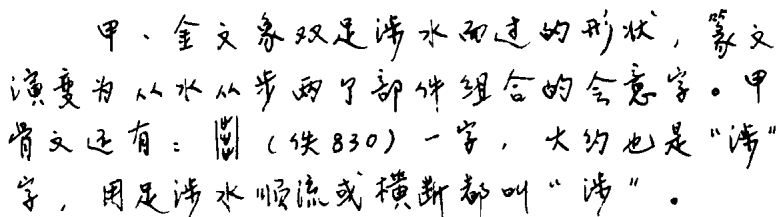 甲、金文象双足涉水而过的形状，篆文
演变为从水从步两个部件组合的会意字。甲
骨文还有：（佚830）一字，大约也是“涉”
字，用足涉水顺流或横断都叫“涉”。